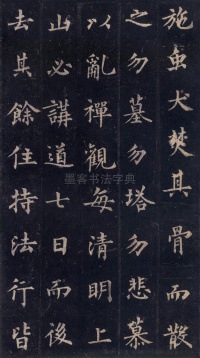 施虫犬焚其骨而散
之勿墓勿塔勿悲慕
以亂禪觀每清明上
山必講道七日而後
去其餘住持法行皆
墨客书法字典